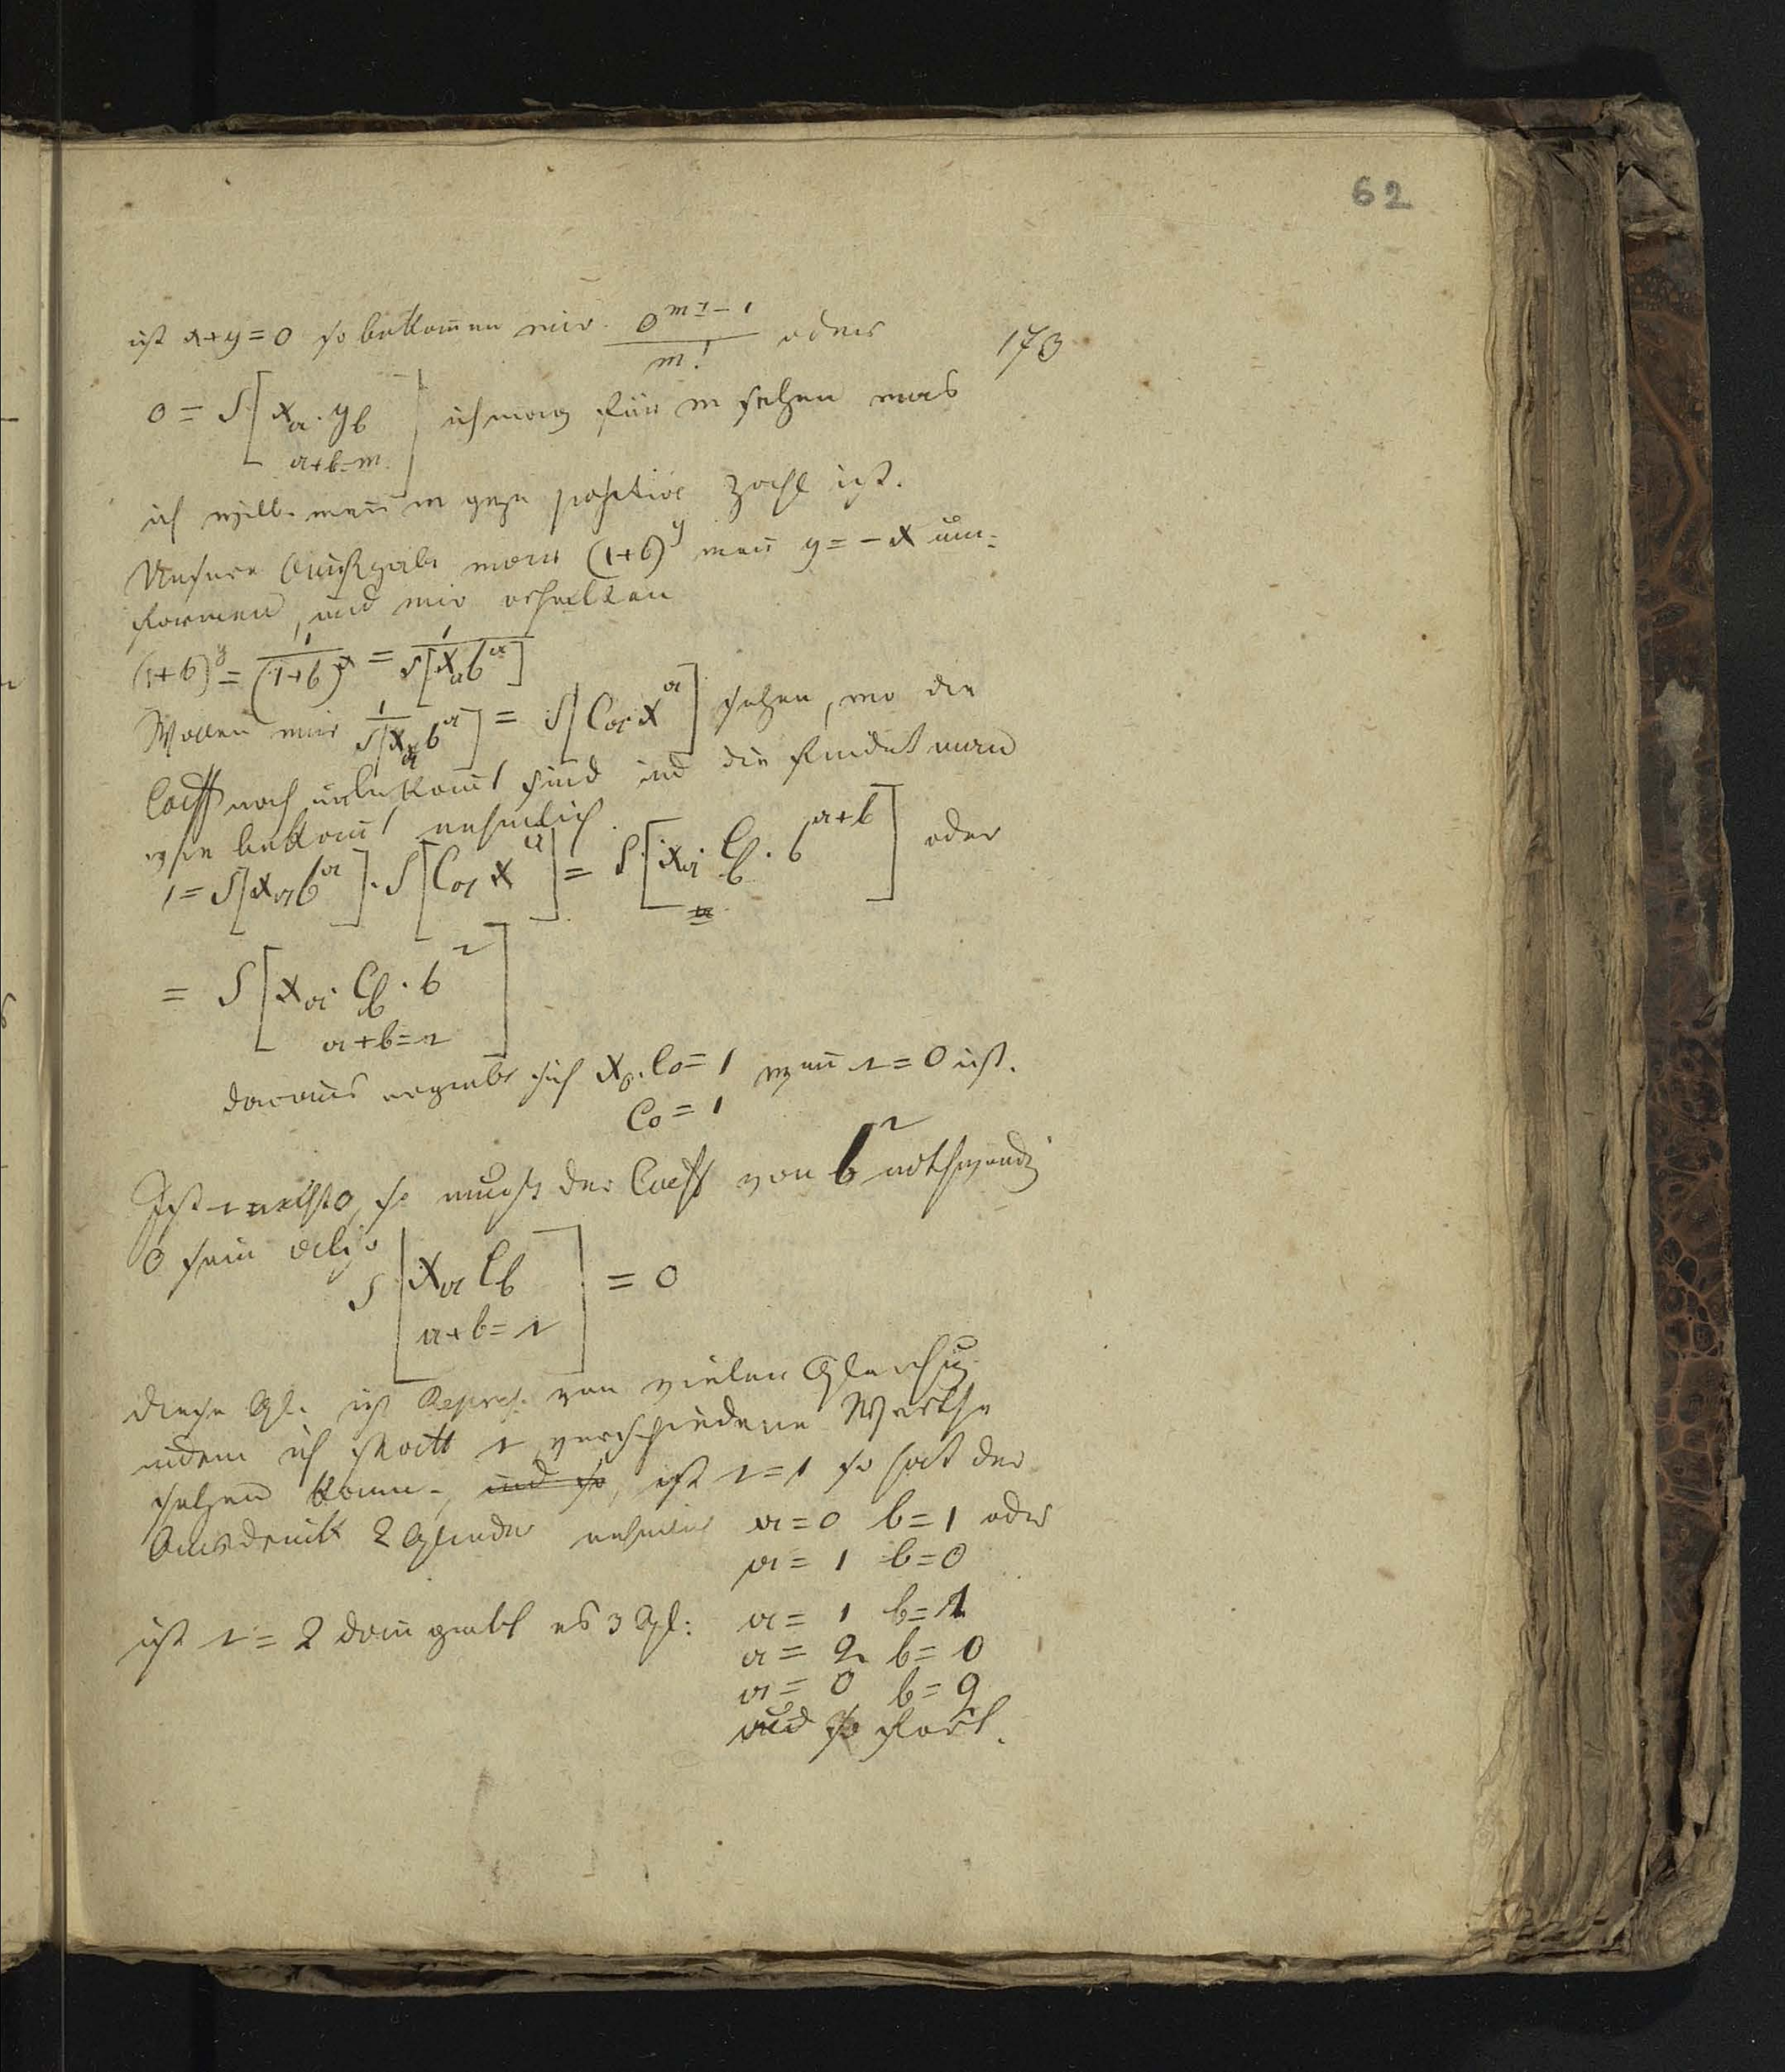 62
ist x+y=0 so bekom̅en wir 0^{m|-1}/m! oder
173
0 = S[x_a. y_b] ich mag für m setzen was
a+b=m
ich will. wen̅ m ganze positive Zahl ist.
Unsere Aufgabe war (1+b)^y wen̅ y=-x um=
formen, und wir erhalten
(1+b)^y = 1/(1+b)^x = 1/S[x_a b^a]
Wollen wir 1/S[x_a b^a] = S[C_a x^a] setzen, wo die
Coeff noch unbekan̅t sind und die findet man
wie bekan̅t nehmlich
1 = S[x_a b^a] . S[C_a x^a] = S[x_a. C_b. b^{a+b}] oder
= S[x_a. C_b. b^r]
a+b=r
daraus ergiebt sich x_0. C_0=1 wen̅ r=0 ist.
C_0=1
Ist r nicht 0, so muß der Coeff von b^r nothwendig
0 sein also
S[x_a C_b] = 0
a+b=r
diese Gl. ist Repres. von vielen Gleichung
indem ich statt r verschiedene Werthe
setzen kann, und so, ist r=1 so hat der
Ausdruck 2 Glieder nehmlich a=0 b=1 oder
a=1 b=0
ist r=2 dan̅ giebt es 3 Gl: a=1 b=1
a=2 b=0
a=0 b=2
und so fort.